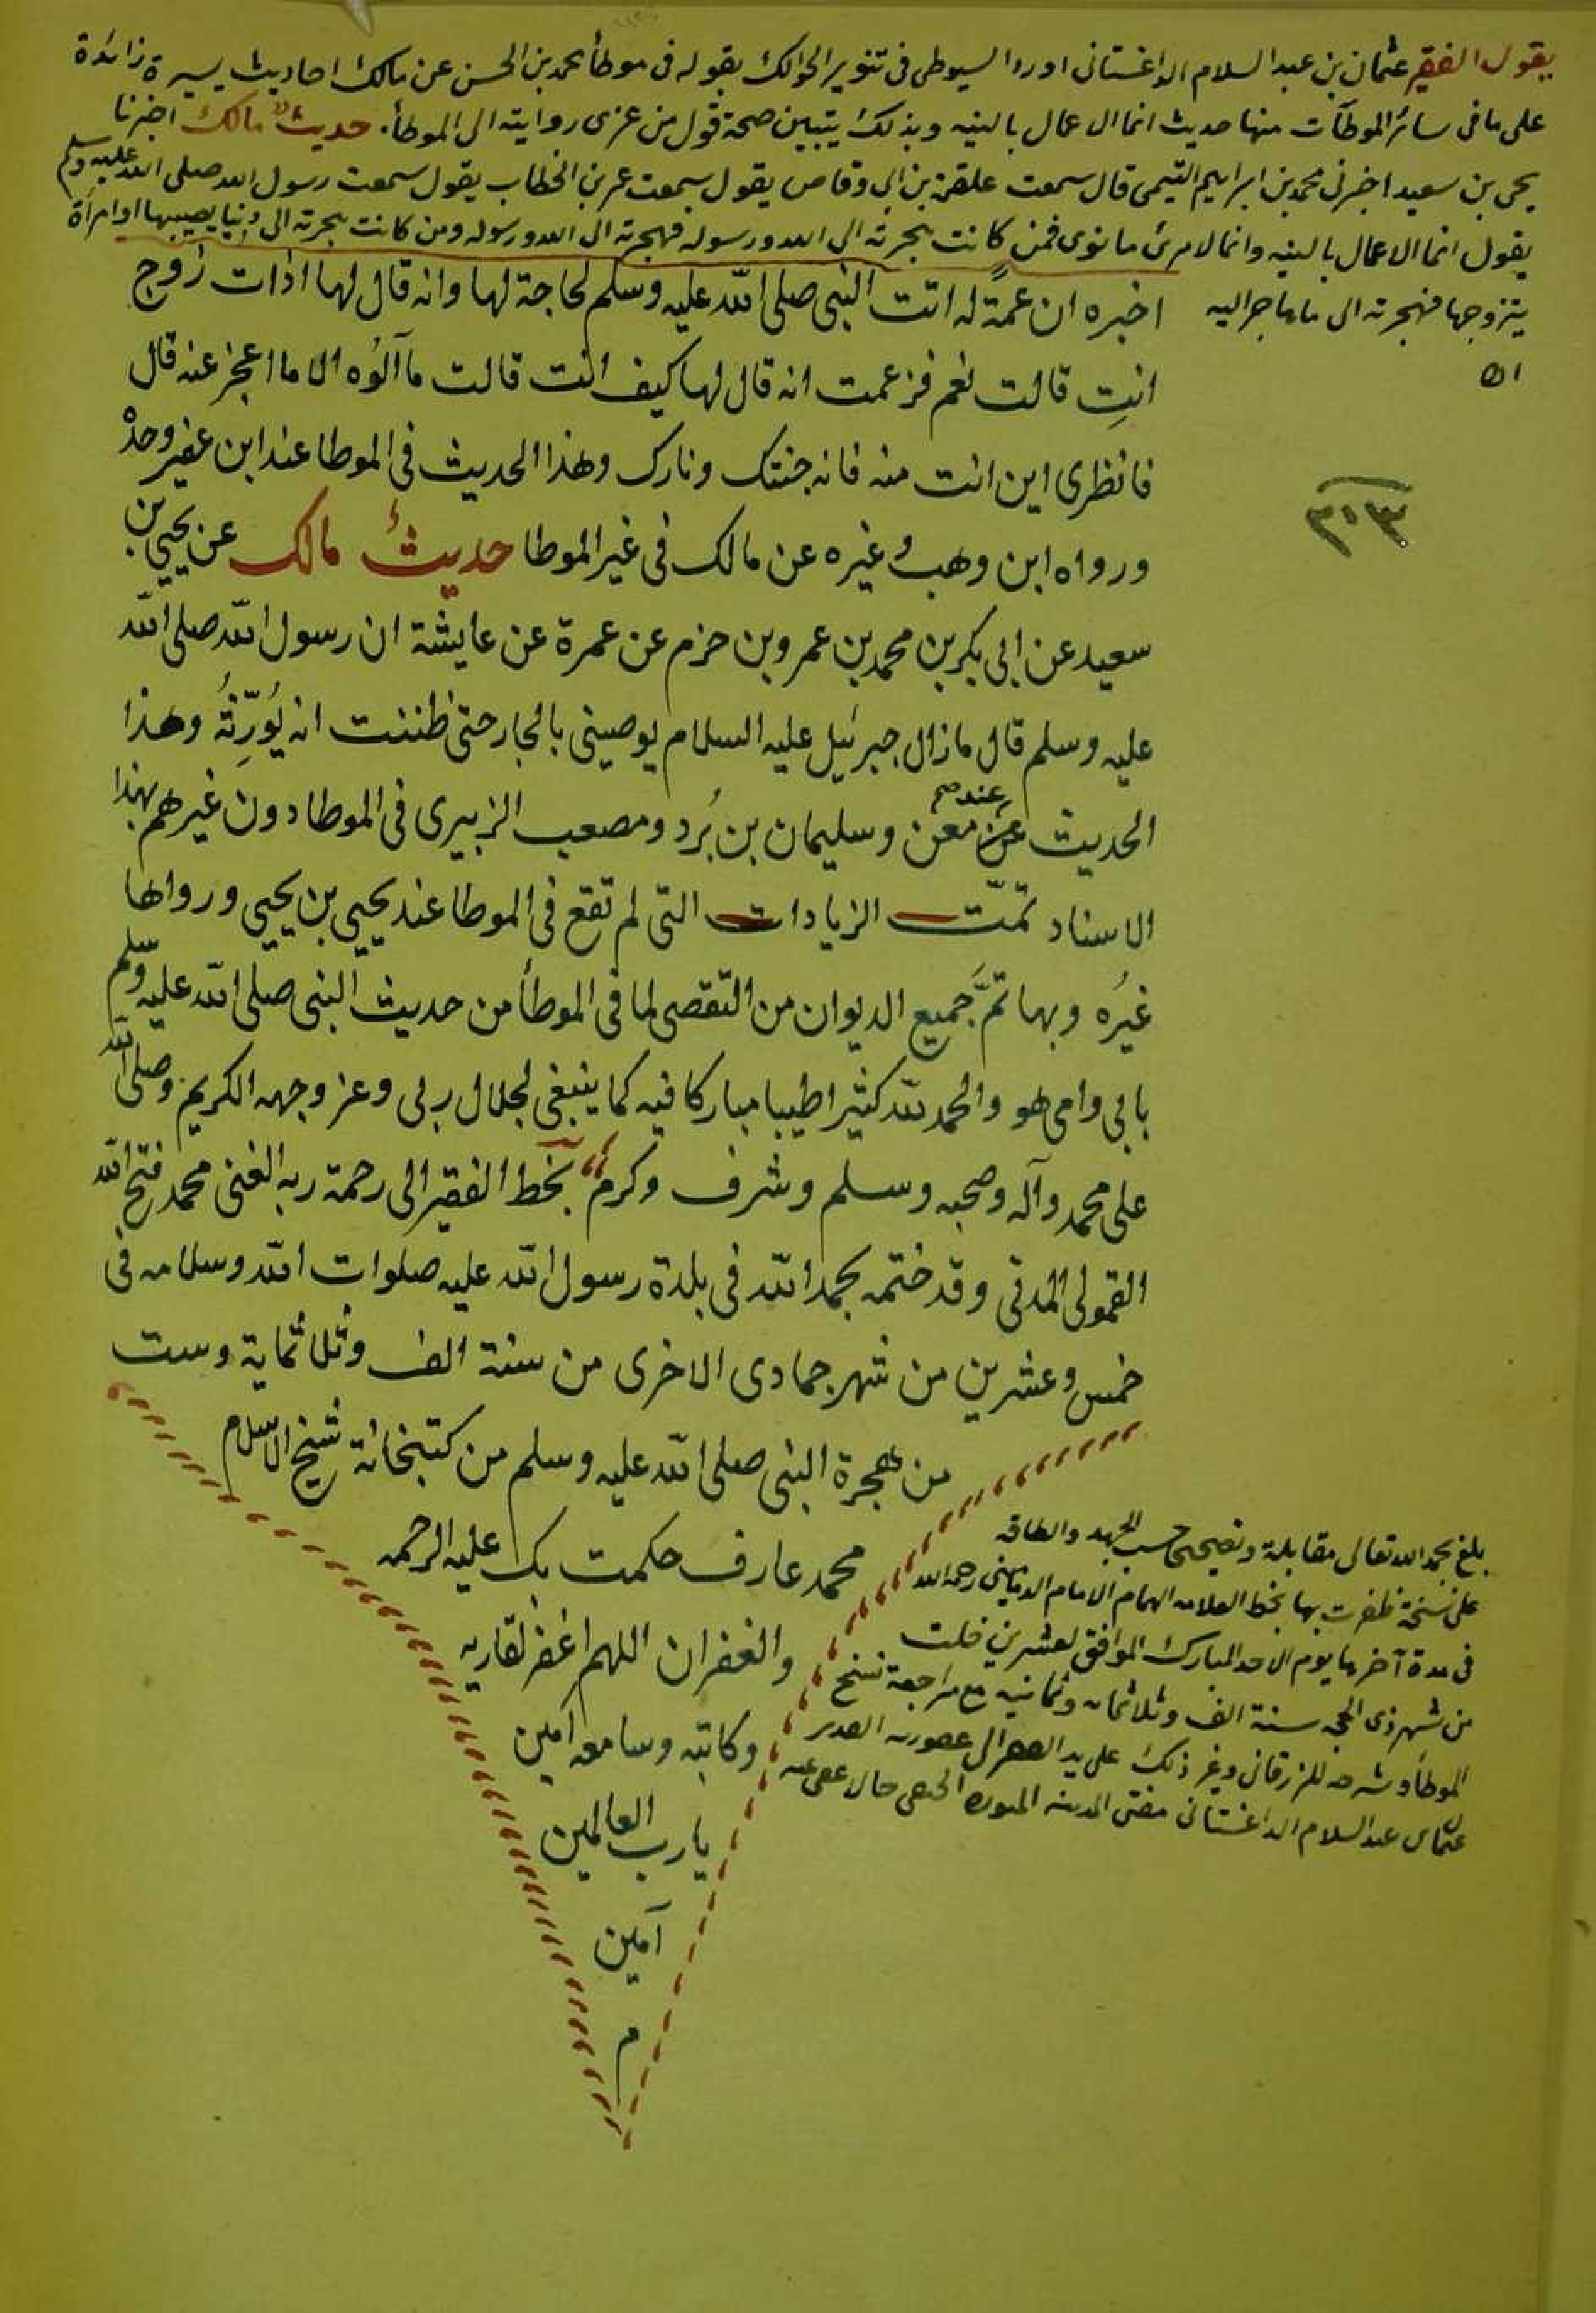 يقول الفقير عثمان بن عبد السلام الداغستانى اورد السيوطى فى تنوير الحوالك بقوله فى موطأ محمد بن الحسن عن مالك احاديث يسيرة زائدة
على ما فى سائر الموطآت منها حديث انما الاعمال بالنيه وبذلك يتبين صحة قول من عزى روايته الى الموطأ. حديث مالك اخبرنا
يحيى بن سعيد اخبرنى محمد بن ابراهيم التيمى قال سمعت علقمة بن ابى وقاص يقول سمعت عمر بن الخطاب يقول سمعت رسول الله صلى الله عليه وسلم
يقول انما الاعمال بالنيه وانما لامرئ ما نوى فمن كانت هجرته الى الله ورسوله فهجرته الى الله ورسوله ومن كانت هجرته الى دنيا يصيبها او امرأة
يتزوجها فهجرته الى ما هاجر اليه
اه
اخبره ان عمة له اتت النبى صلى الله عليه وسلم لحاجة لها وانه قال لها اذات زوج
انتِ قالت نعم فزعمت انه قال لها كيف انت قالت مآ آلوُه الا ما اعجز عنه قال
فانظرى اين انت منه فانه جنتك ونارك وهذا الحديث فى الموطا عند ابن عفير وحدْ
٣١٣
ورواه ابن وهب وغيره عن مالك فى غير الموطا حديثُ مالك عن يحيي بن
سعيد عن ابى بكر بن محمد بن عمرو بن حزم عن عمرة عن عايشة ان رسول الله صلى الله
عليه وسلم قال ما زال جبرئيل عليه السلام يوصينى بالجار حتى ظننت انه يُوَرِّثُهُ وهذا
الحديث عن عند صح معن وسليمان بن بُرد ومصعب الزبيرى فى الموطا دون غيرهم بهذا
الاسناد تمّت الزيادات التى لم تقع فى الموطا عند يحيي بن يحيي ورواها
غيرُه وبها تمَّ جميع الديوان من التقصى لما فى الموطأ من حديث النبى صلى الله عليه وسلم
بابى وامى هو والحمد لله كثيرا طيبا مباركا فيه كما ينبغى لجلال ربى وعز وجهه الكريم وصلى الله
على محمد وآله وصحبه وسلم وشرف وكرم بخط الفقير الى رحمة ربه الغنى محمد فتح الله
القمولى المدنى وقد ختمه بحمد الله فى بلدة رسول الله عليه صلوات الله وسلامه فى
خمس وعشرين من شهر جمادى الاخرى من سنة الف وثلاثماية وست
من هجرة النبى صلى الله عليه وسلم من كتبخانة شيخ الاسلام
محمد عارف حكمت بك عليه الرحمه
والغفران اللهم اغفر لقاريه
وكاتبه وسامعه امين
يا رب العالمين
آمين
م
بلغ بحمد الله تعالى مقابلة وتصحيحا حسب الجهد والطاقه
على نسخة ظفرت بها بخط العلامه الهمام الامام رحمه الله
فى مدة آخرها يوم الاحد المبارك الموافق لعشرين خلت
من شهر ذى الحجه سنة الف وثلاثمائه وثمانيه مع مراجعة نسخ
الموطأ وشرحه للزرقانى وغير ذلك على يد الفقير الى عفو ربه القدير
عثمان عبد السلام الداغستانى مفتى المدينه المنوره الحنفى حالا عفى عنه